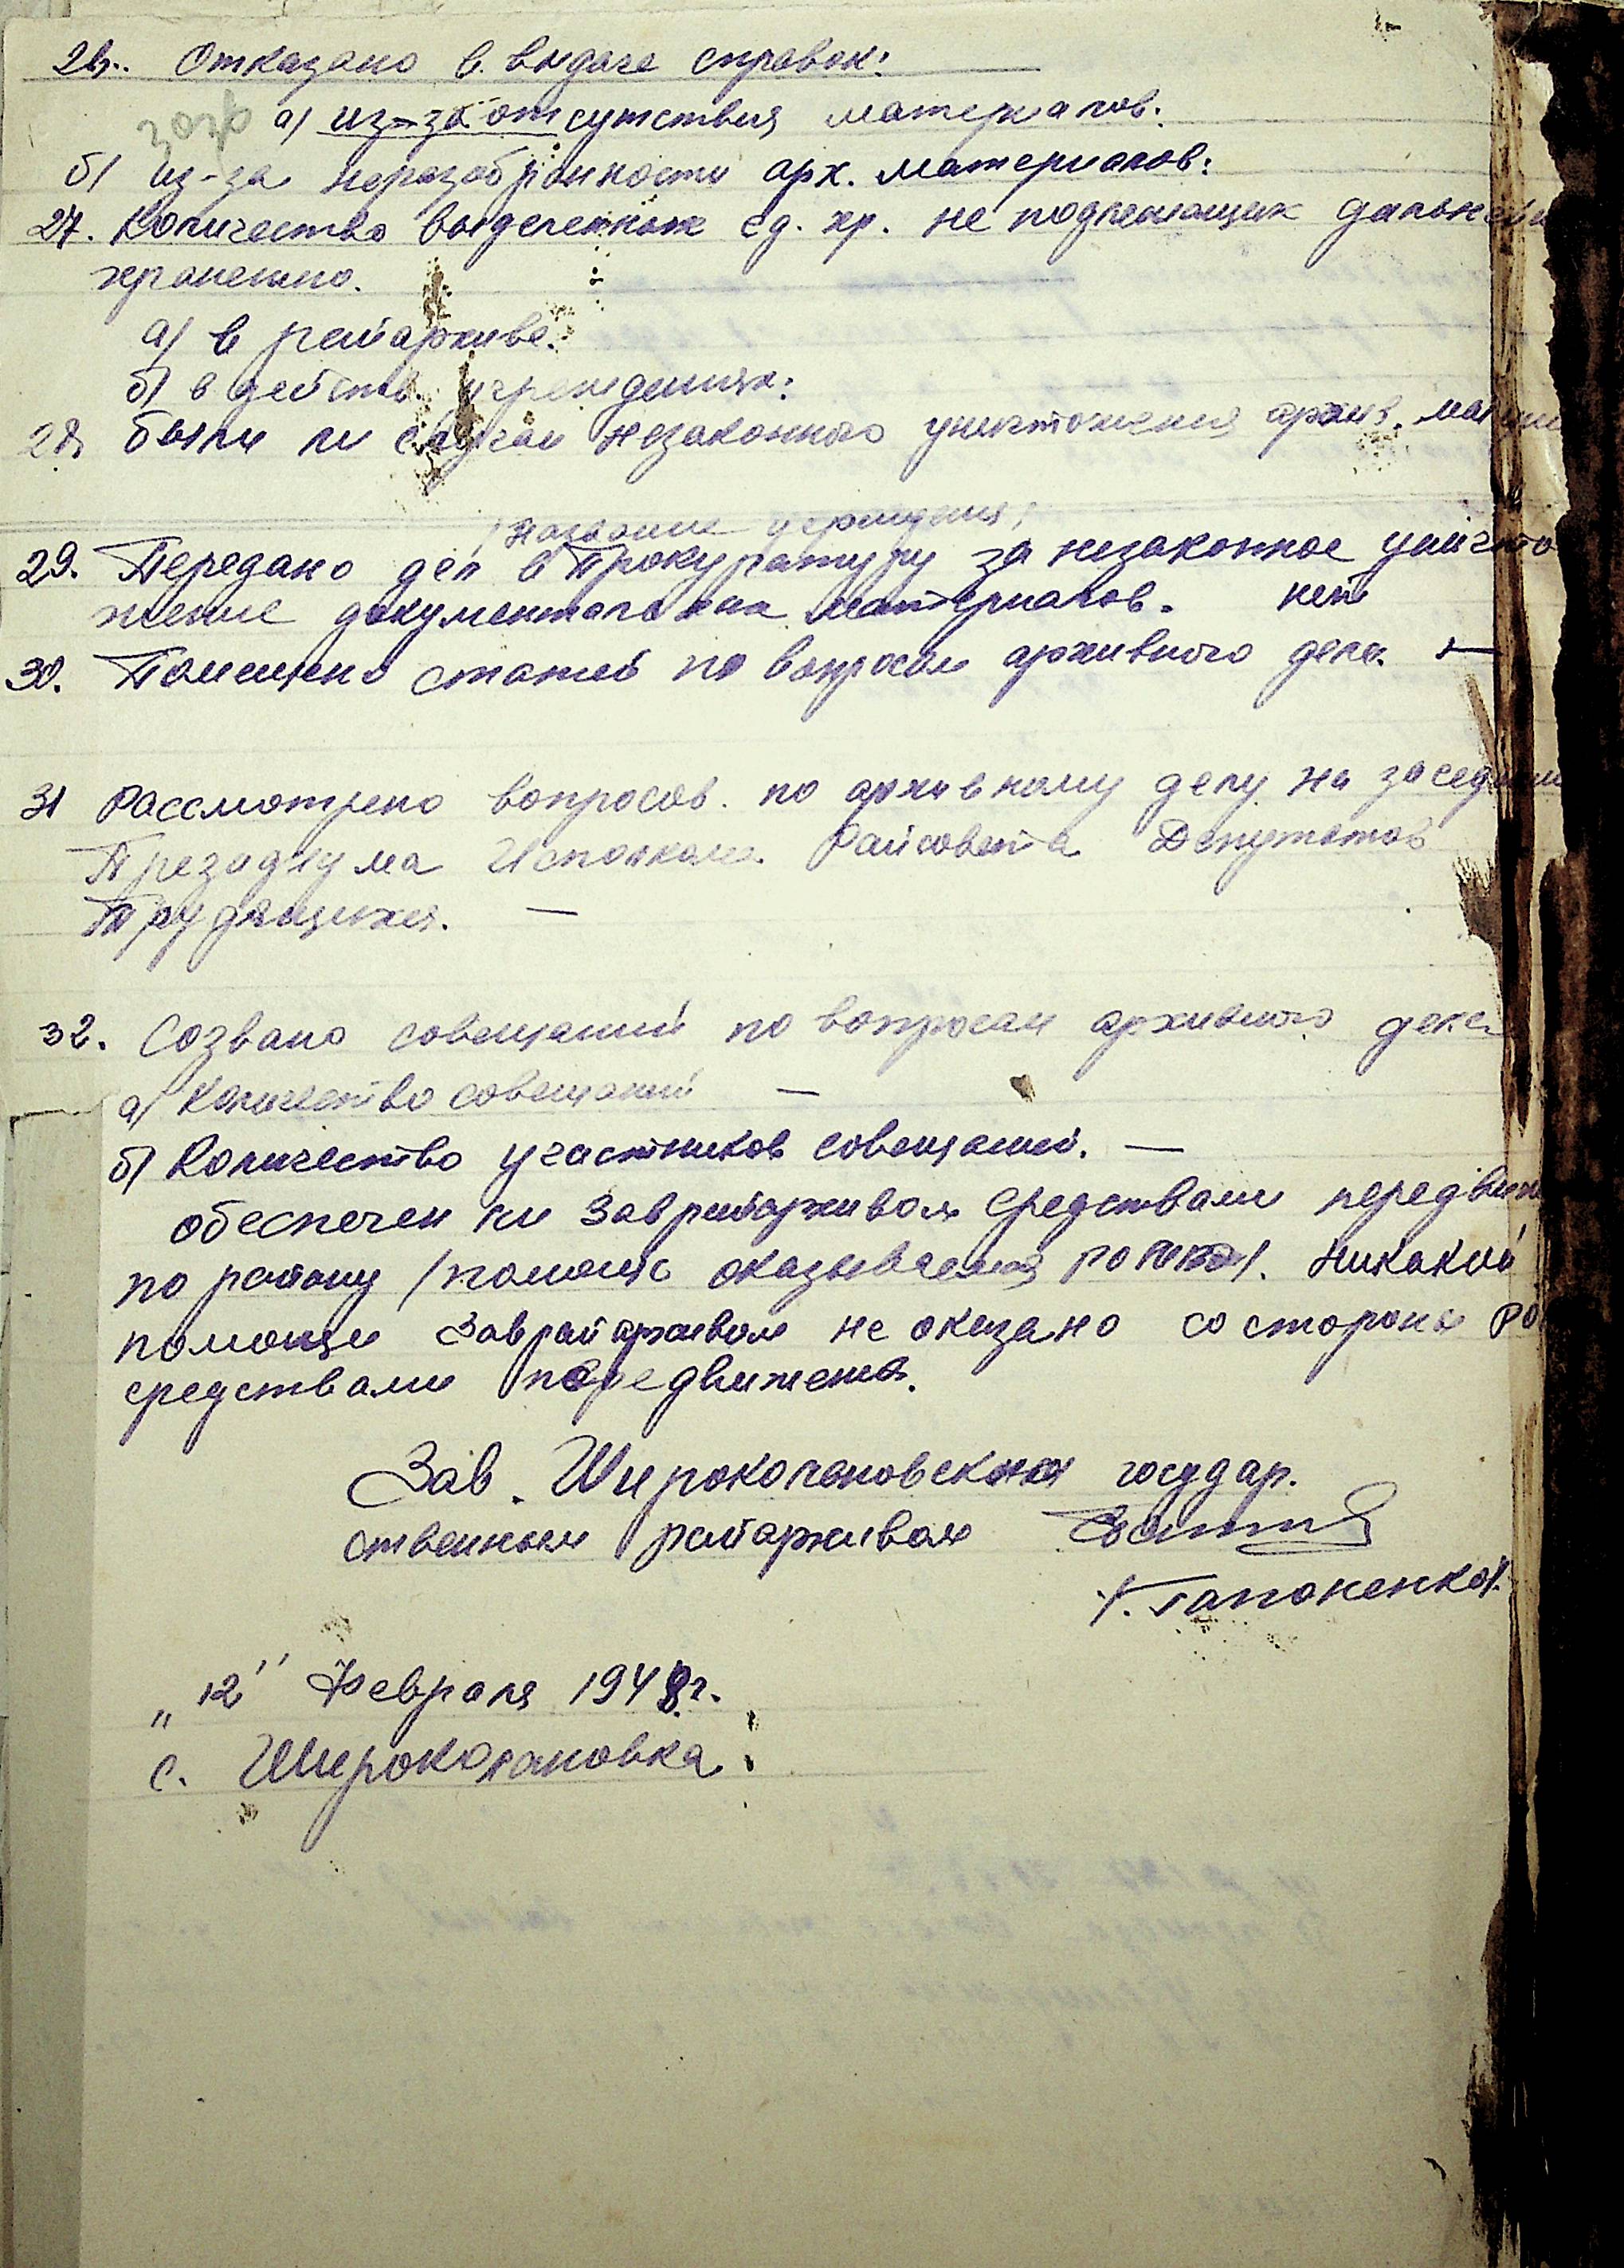 26. Отказано в выдаче справок:
а) из-за отсутствия материалов:
б) из-за неразобранности арх. материалов:
27. Количество выделенных ед. хр. не подлежащих дальней
хранению.
а) в райархиве.
б) в действ. учреждениях:
28. Были ли случаи незаконного уничтожения архив. ма
/Название учреждения/
29. Передано дел в Прокуратуру за незаконное уничто
жение документальных материалов. нет
30. Помещено статей по вопросам архивного дела. —
31 Рассмотрено вопросов. по архивному делу на заседании
Презадиума Исполкома Райсовета Депутатов
Трудящихся. —
32. Созвано совещаний по вопросам архивного дела
а) Количество совещаний —
б) Количество участников совещаний. —
обеспечен ли Заврайархивом средствами передвиж
по району /помощь оказываемая РО МВД/. Никакой
помощи Заврайархивом не оказано со стороны РО
средствами передвижения.
Зав. Широколановским государ.
ственным райархивом
/. Гапоненко/.
„12" Февраля 1948 г.
с. Широколановка